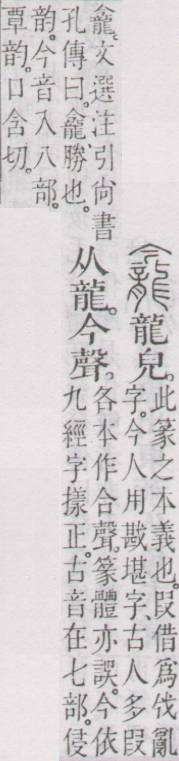 龕 龍皃。此篆之本義也。叚借爲伐亂
字。今人用戡堪字、古人多叚
龕。文選注引尚書
孔傳曰。龕、勝也。
从龍。今聲。各本作合聲。篆體亦誤。今依
九經字㨾正。古音在七部。侵
韵。今音入八部。
覃韵。口含切。